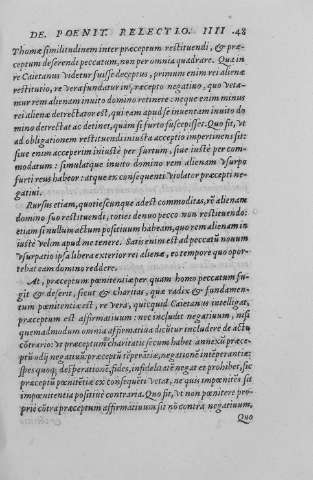 DE. POENIT. RELECTIO. IIII .48
Thomæ similitudinem inter præceptum restituendi, & præ-
ceptum deserendi peccatum, non per omnia quadrare. Qua in
re Caietanus videtur fuisse deceptus, primum enim rei alienæ
restitutio, re vera fundatur in præcepto negatiuo, quo veta-
mur rem alienam inuito domino retinere: neque enim minus
rei alienæ detrectator est, qui eam apud se inuentam inuito do
mino detrectat ac detinet, quàm si furto suscepisset. Quo fit, vt
ad obligationem restituendi iniusta acceptio impertinens sit:
siue enim acceperim iniustè per furtum, siue iustè per com-
modatum: simulatque inuito domino rem alienam vsurpo
furti reus habeor: atque ex consequenti violator præcepti ne-
gatiui.
Rursus etiam, quotiescunque adest commoditas, rē alienam
domino suo restituendi, toties denuo pecco non restituendo:
etiam si nullum actum positiuum habeam, quo rem alienam in
iustè velim apud me tenere. Satis enim est ad peccatū nouum
vsurpatio ipsa libera exterior rei alienæ, eo tempore quo opor-
tebat eam domino reddere.
At, præceptum pœnitentiæ per quam homo peccatum fu-
git & deserit, sicut & charitas, quæ radix & fundamen-
tum pœnitentiæ est, re vera, quicquid Caietanus intelligat,
præceptum est affirmatiuum: nec includit negatiuum, nisi
quemadmodum omnia affirmatiua dicūtur includere de actu
cōtrario: vt præceptum charitatis secum habet annexū præce-
ptū odij negatiuū: præceptū tēperātiæ, negationē intēperantiæ:
spes quoque desperationē, fides, infidelitatē negat et prohibet, sic
præceptū pœnitētiæ ex consequēti vetat, ne quis impœnitēs sit
impœnitentia positiua contraria. Quo fit, vt non pœnitere pro-
priè cōtra præceptum affirmatiuum sit nō contra negatiuum,
Quo